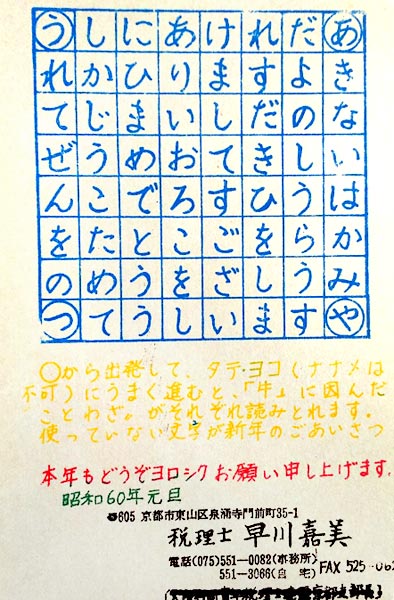 うしにあけれだあ
れかひりますよき
てじまいしだのな
ぜうめおてきしい
んこでろすひうは
をたとこごをらか
のめうをざしうみ
つてうしいますや
○から出発して、タテ・ヨコ(ナナメは
不可)にうまく進むと、「牛」に因んだ
ことわざ。がそれぞれ読みとれます。
使っていない文字が新年のごあいさつ
本年もどうぞヨロシクお願い申し上げます。
昭和60年元旦
〠605 京都市東山区泉涌寺門前町35-1
税理士 早川嘉美
電話(075)551―0082(事務所)
551―3066(自 宅) FAX 525-062